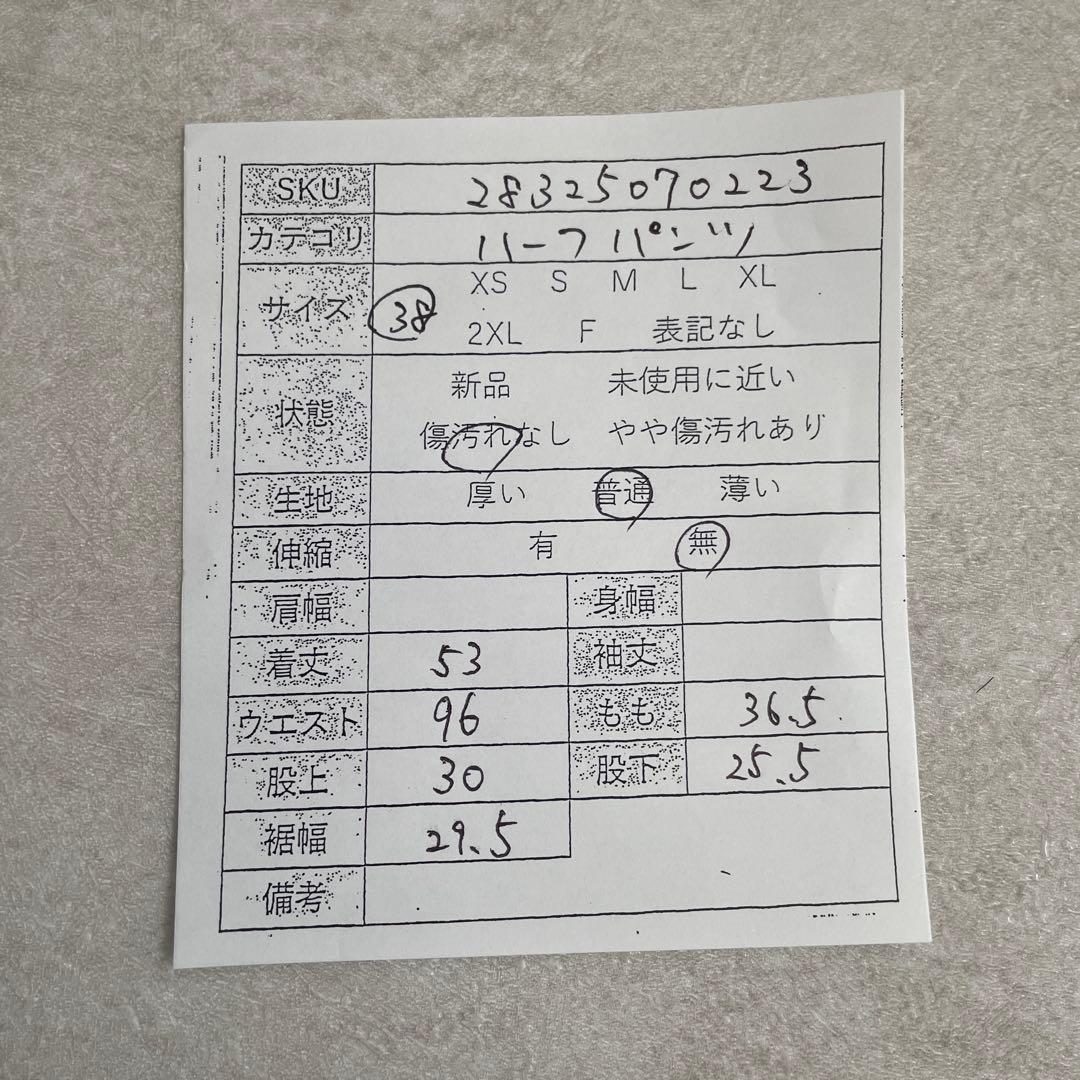 SKU 28325070223
カテゴリ ハーフパンツ
サイズ 38 XS S M L XL
2XL F 表記なし
状態 新品 未使用に近い
傷汚れなし やや傷汚れあり
生地 厚い 普通 薄い
伸縮 有 無
肩幅 身幅
着丈 53 袖丈
ウエスト 96 もも 36.5
股上 30 股下 25.5
裾幅 29.5
備考